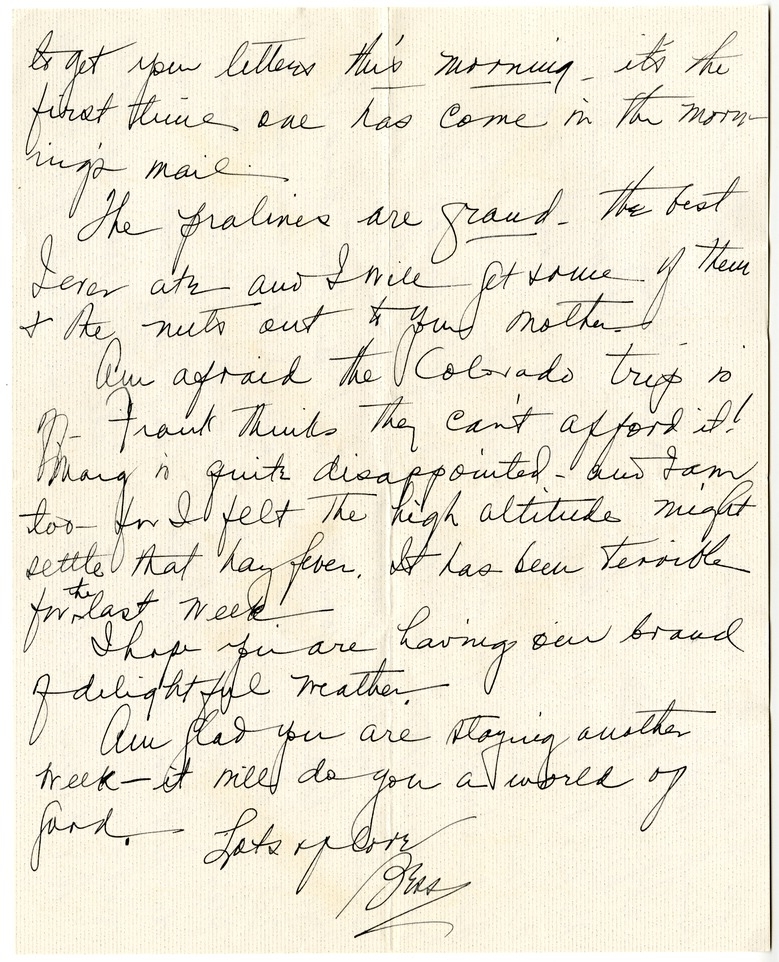 to get your letters this morning - it's the
first time one has come in the morn-
ing's mail.
The pralines are grand - the best
I ever ate and I will get some of them
& the nuts out to your mother.
Am afraid the Colorado trip is
off - Frank thinks they can't afford it!
Marg is quite disappointed - and I am
too - for I felt the high altitude might
settle that hay fever. It has been terrible
for the last week
I hope you are having our brand
of delightful weather
Am glad you are staying another
week - it will do you a world of
good.
Lots of love
Bess